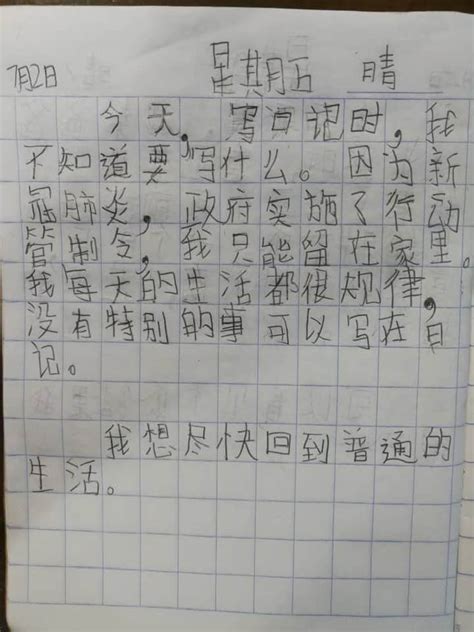 7月2日 星期五 晴
今天，写日记时，我
不知道要写什么。因为新
冠肺炎，政府实施了行动
管制令，我只能留在家里。
我每天的生活都很规律，
没有特别的事可以写在日
记。
我想尽快回到普通的
生活。